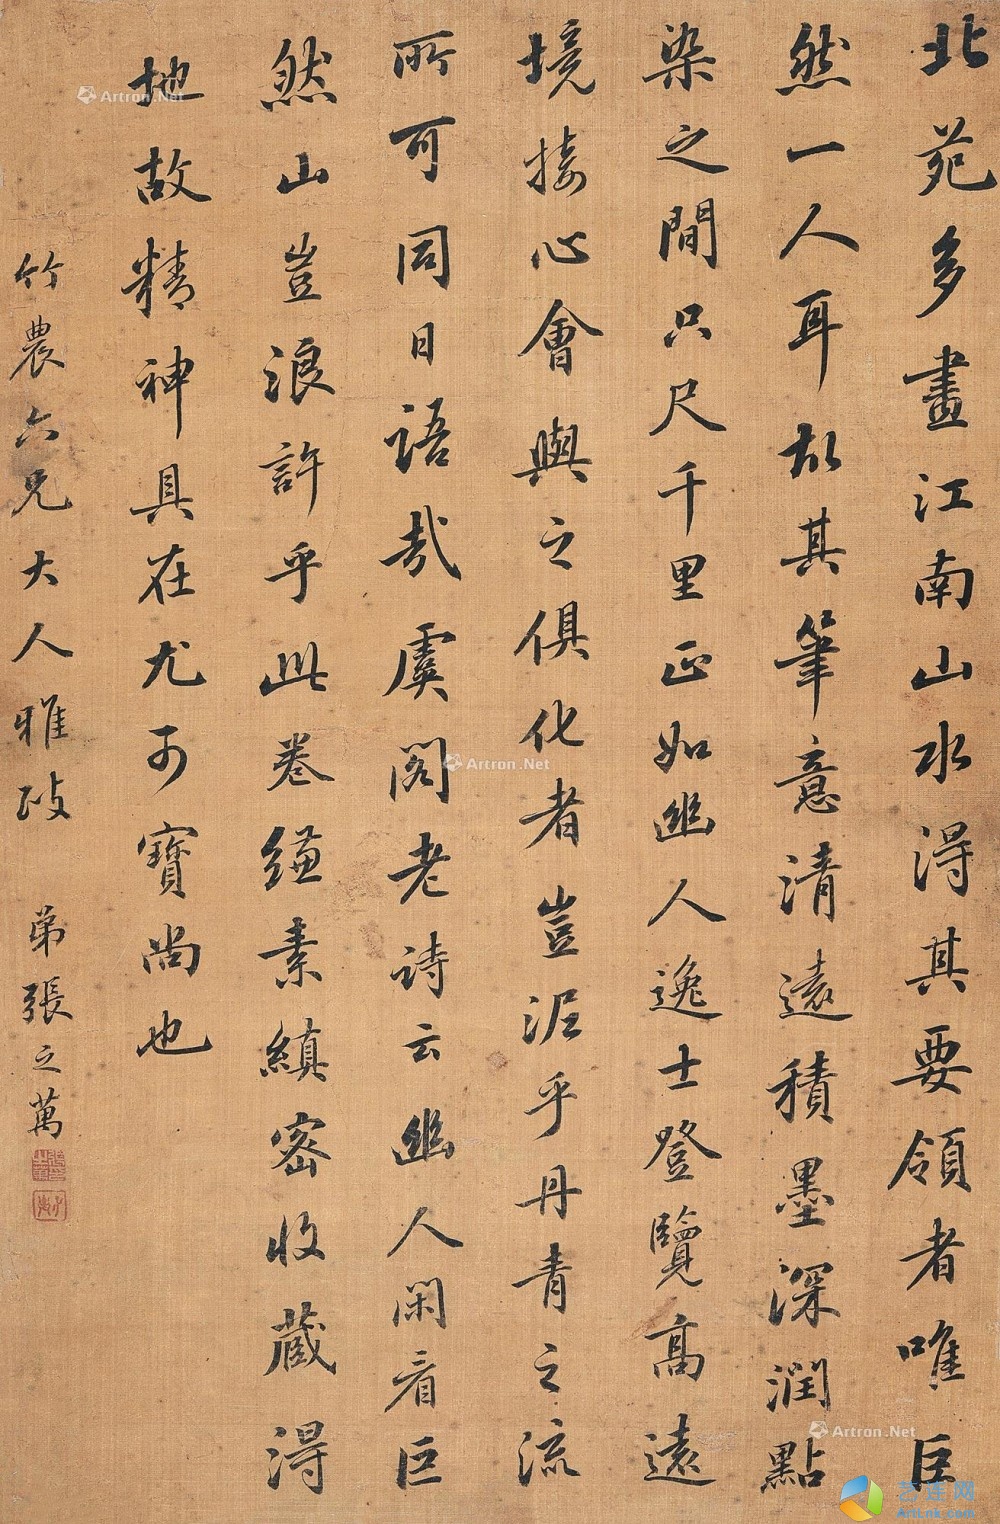 北苑多畫江南山水得其要領者唯巨
然一人耳故其筆意清遠積墨深潤點
染之間只尺千里正如幽人逸士登覽高遠
境接心會與之俱化者豈泥乎丹青之流
所可同日語哉虞閣老詩云幽人閑看巨
然山豈浪許乎此卷縑素縝密收藏得
地故精神具在尤可寶尚也
竹農六兄大人雅政
弟張之萬
Artron.Net
Artron.Net
Artron.Net
艺连网
ArtLnk.com